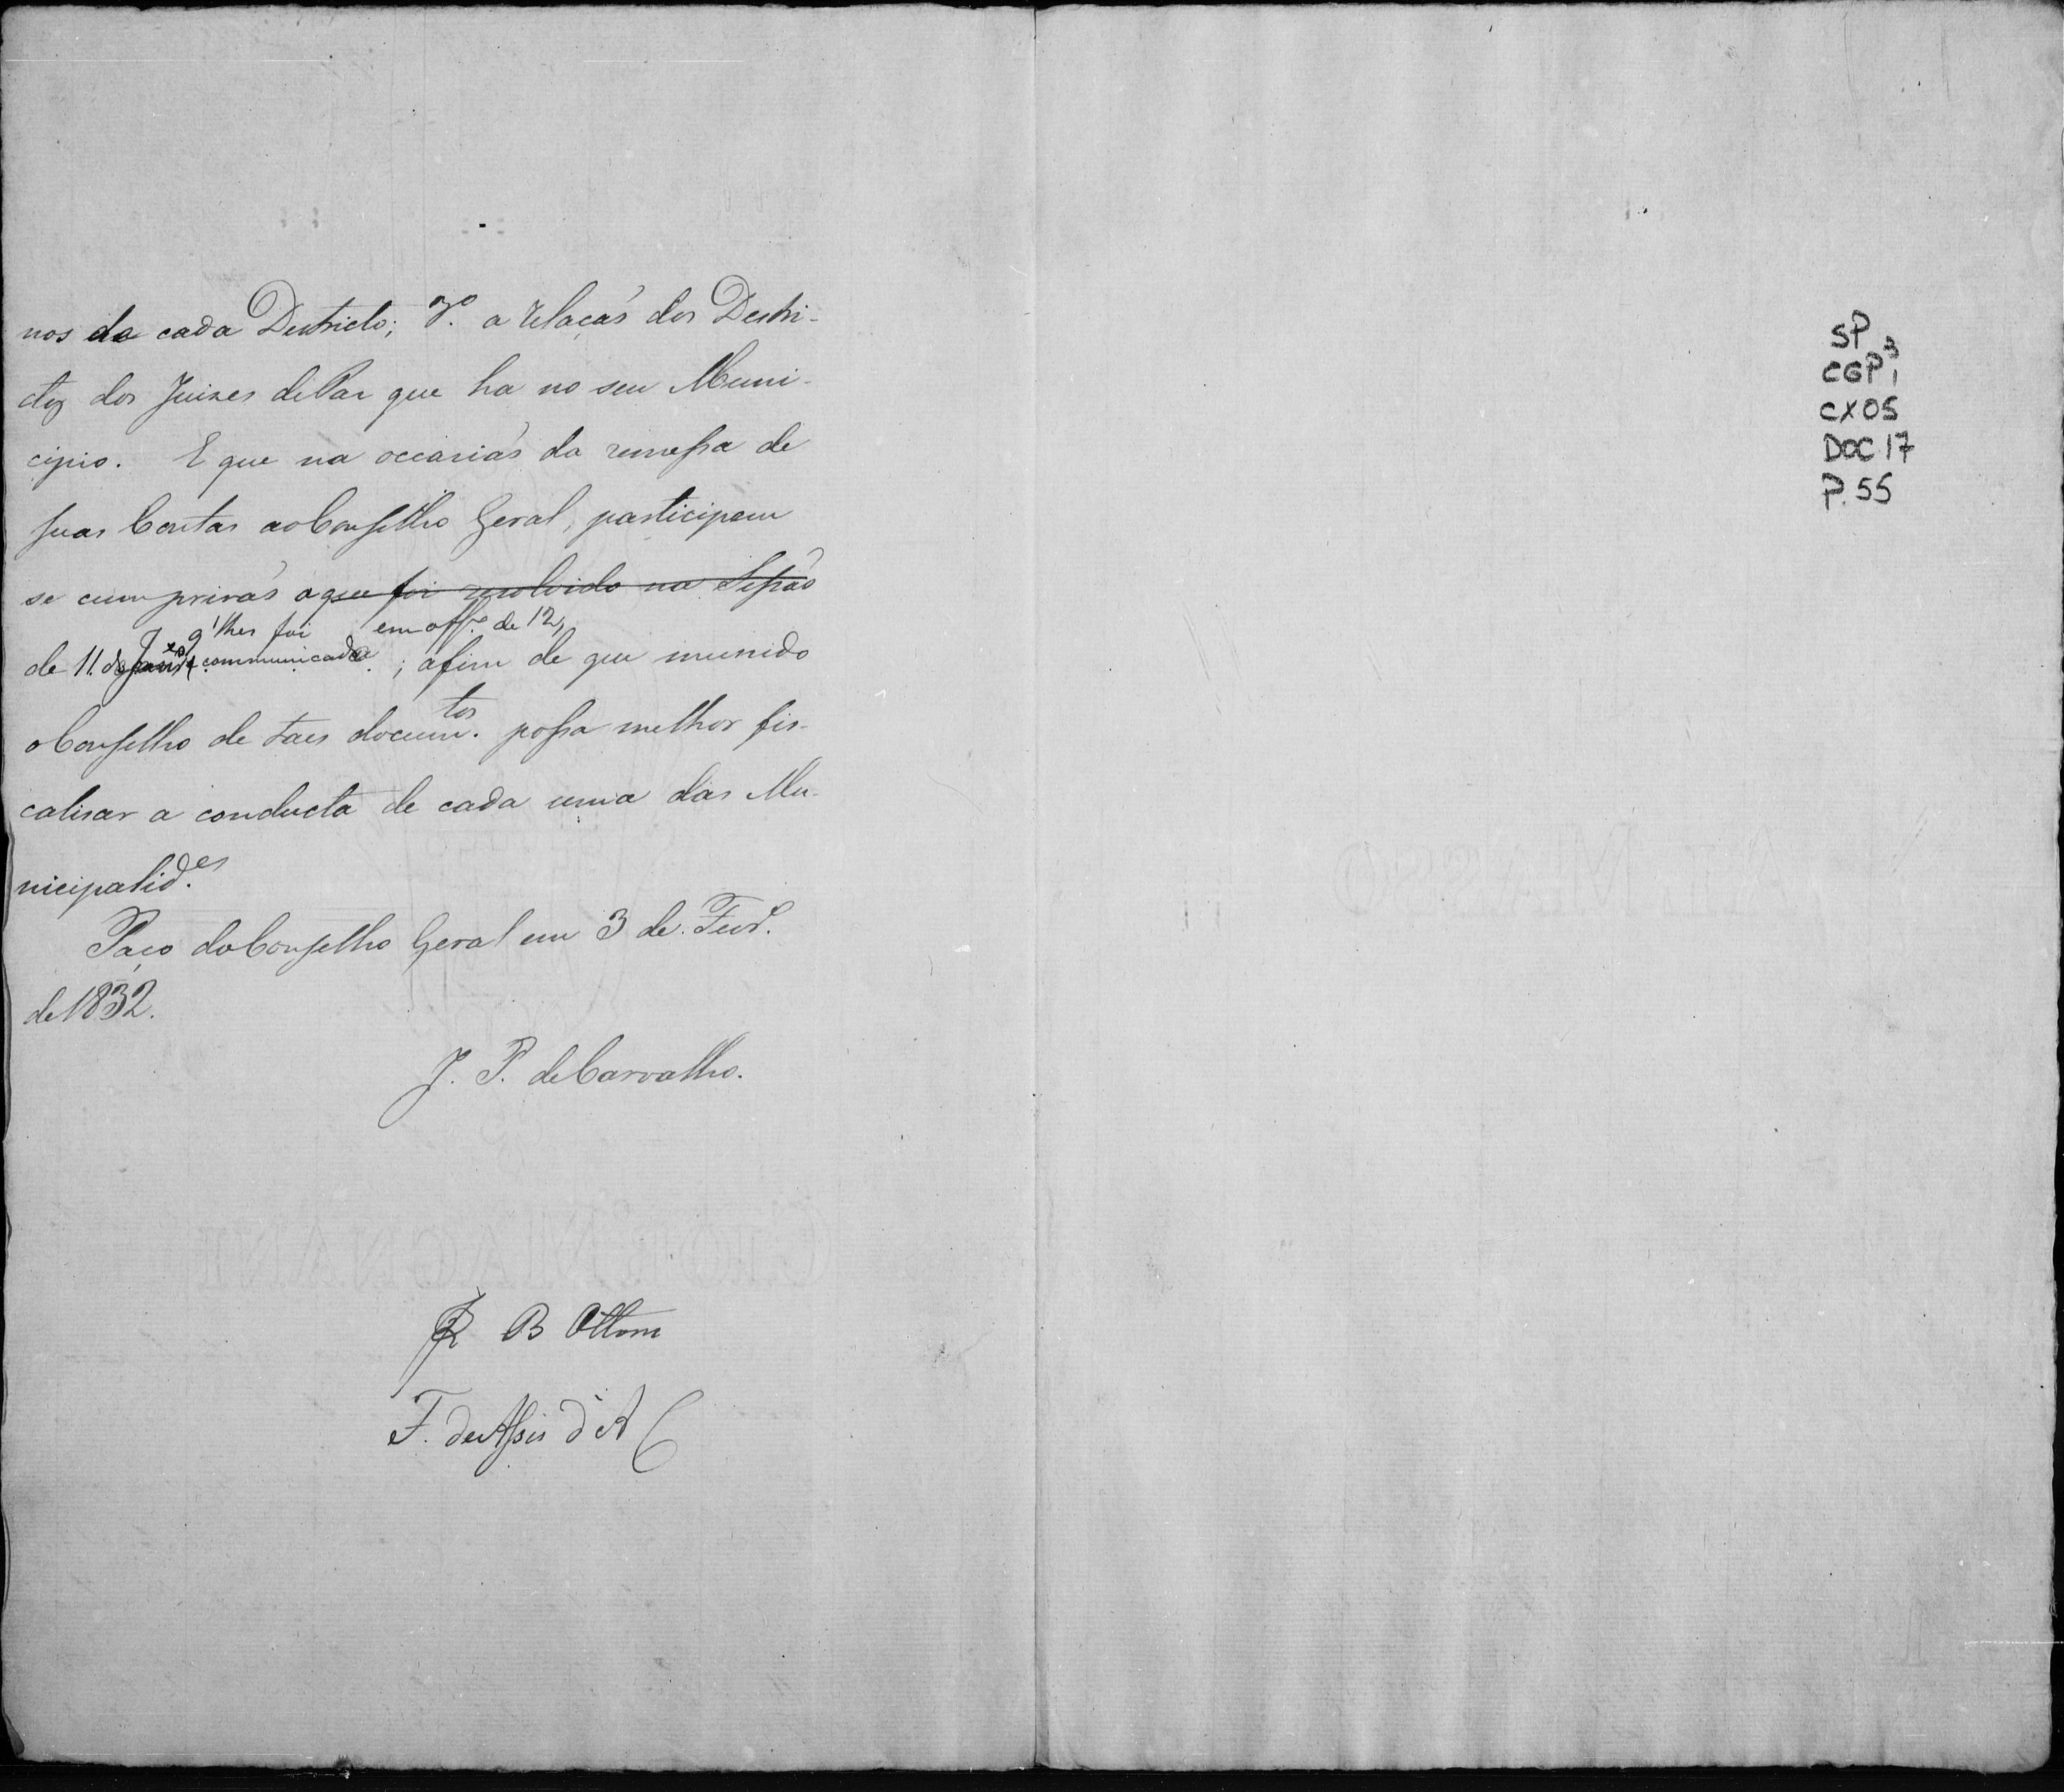 nos de cada Destricto; 7º. a relaçaõ dos Destri-
ctos dos Juizes de Paz que ha no seu Muni-
cipio. E que na occasiaõ da remessa de
suas Contas ao Conselho Geral, participem
se cumpriraõ o que foi resolvido na Sessaõ
q' lhes foi em off.º de 12,
de 11. de Janr.º communicado ; afim de que munido
o Conselho de taes docum.tos possa melhor fis-
calisar a conducta de cada uma das Mu-
nicipalid.es
Paço do Conselho Geral em 3 de Fevr.
de 1832.
J. P. de Carvalho.
B Ottoni
F. de Assis d'A
SP
CGP³ 1
CX05
DOC 17
P.55